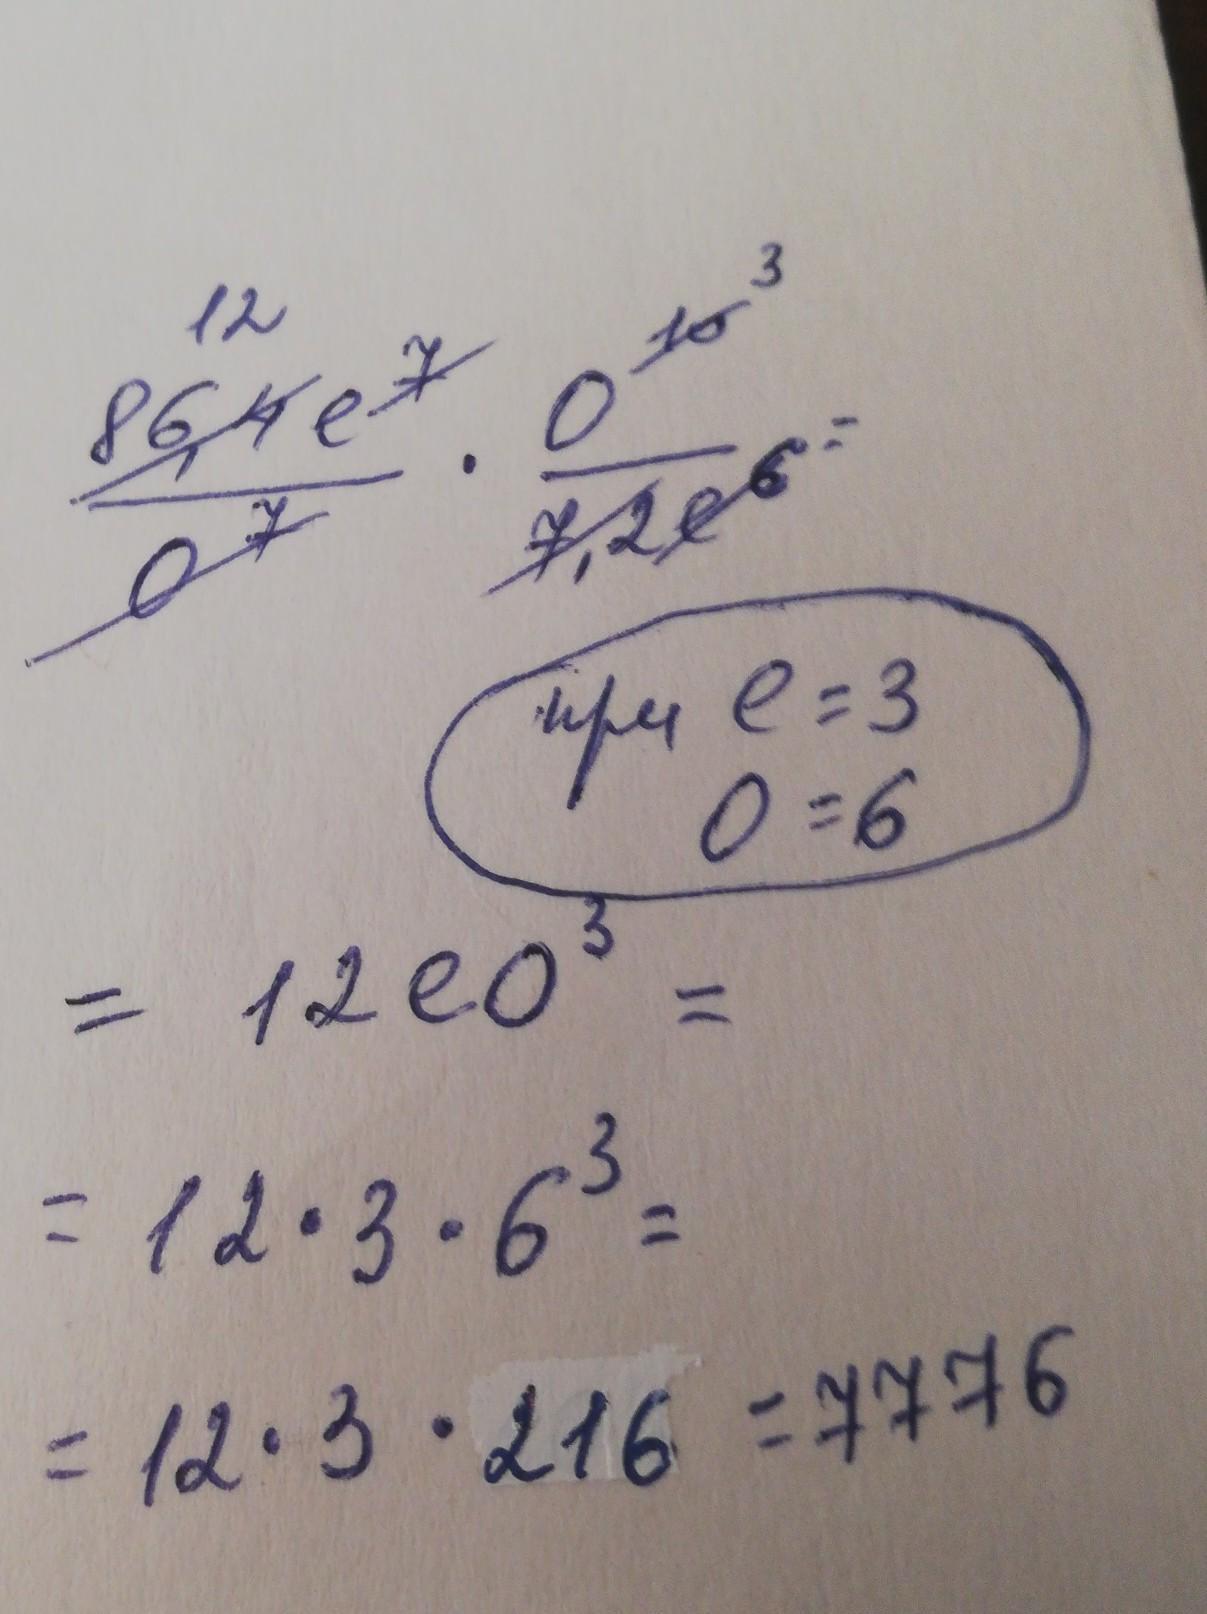 12 3
86,4e⁷/o⁷ · o¹⁰/7,2e⁶ =
при e = 3
o = 6
= 12eo³ =
= 12 · 3 · 6³ =
= 12 · 3 · 216 = 7776